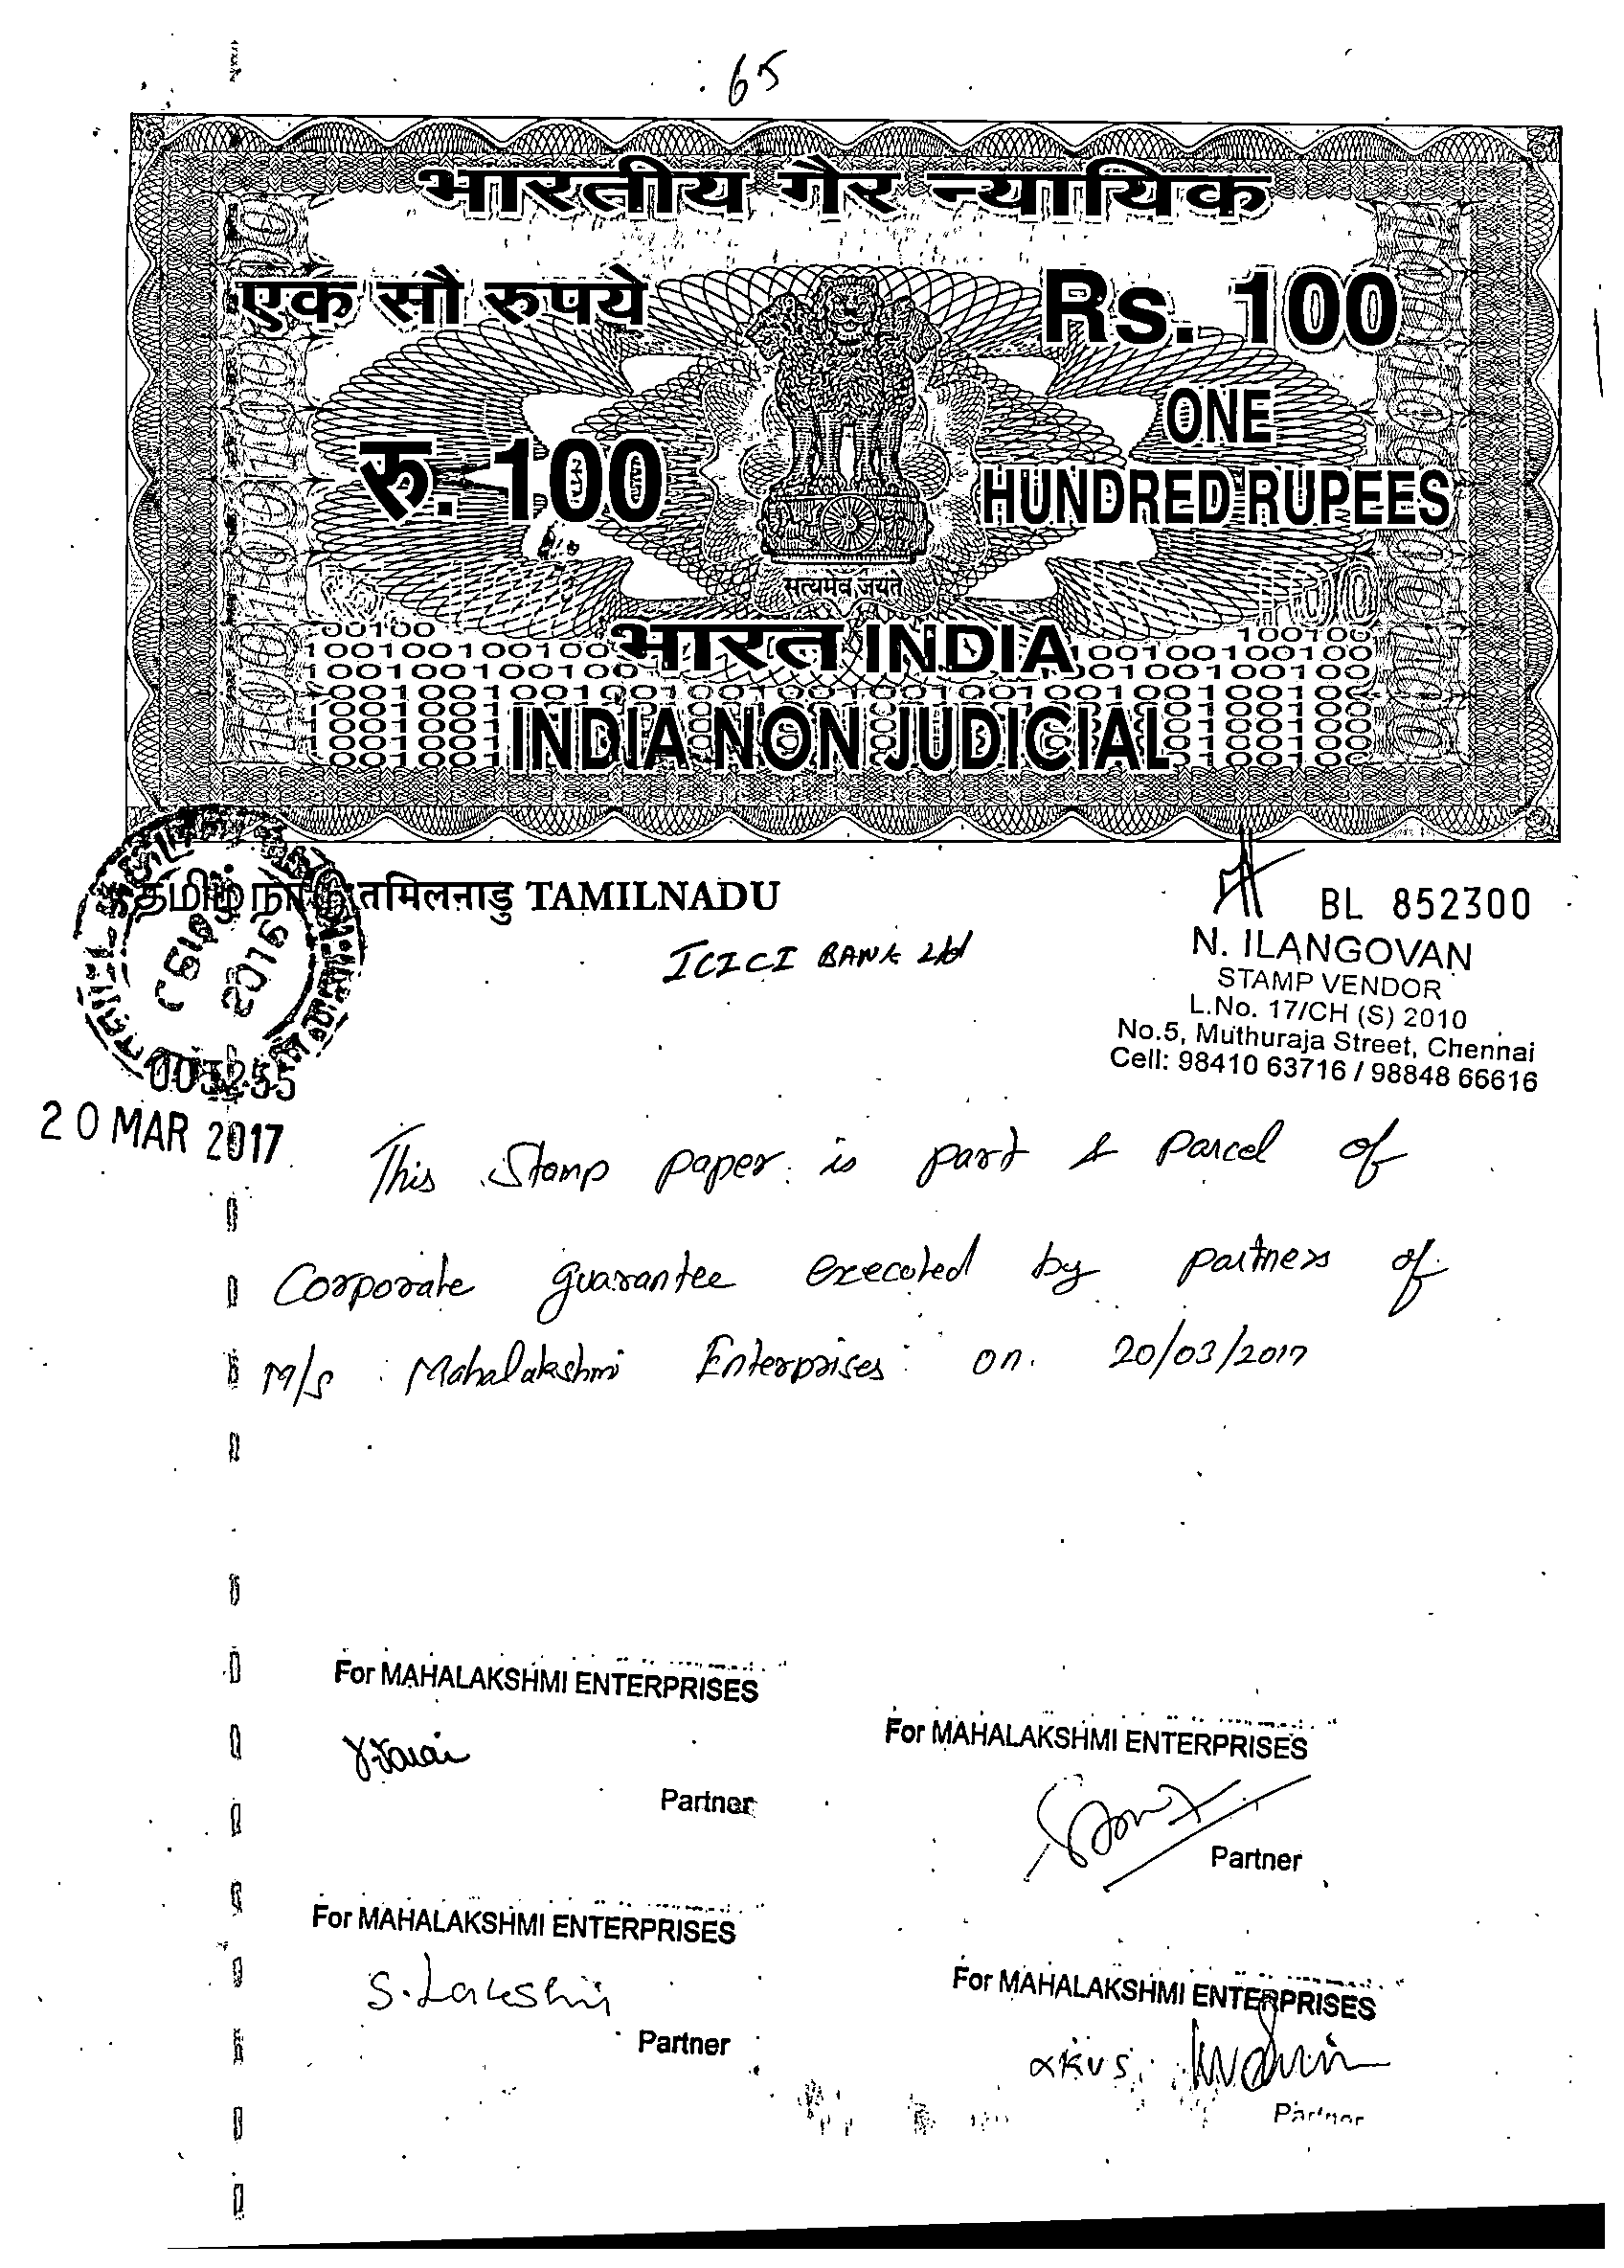 65
भारतीय गैर न्यायिक
एक सौ रुपये
Rs. 100
रु. 100
ONE
HUNDRED RUPEES
सत्यमेव जयते
भारत INDIA
INDIA NON JUDICIAL
தமிழ்நாடு तमिलनाडु TAMILNADU
BL 852300
ICICI BANK Ltd
N. ILANGOVAN
STAMP VENDOR
L.No. 17/CH (S) 2010
No.5, Muthuraja Street, Chennai
Cell: 98410 63716 / 98848 66616
2016
20 MAR 2017
This Stamp paper is part & parcel of
Corporate guarantee executed by partners of
M/s Mahalakshmi Enterprises on 20/03/2017
For MAHALAKSHMI ENTERPRISES
Partner
For MAHALAKSHMI ENTERPRISES
Partner
For MAHALAKSHMI ENTERPRISES
S. Lakshmi
Partner
For MAHALAKSHMI ENTERPRISES
Partner